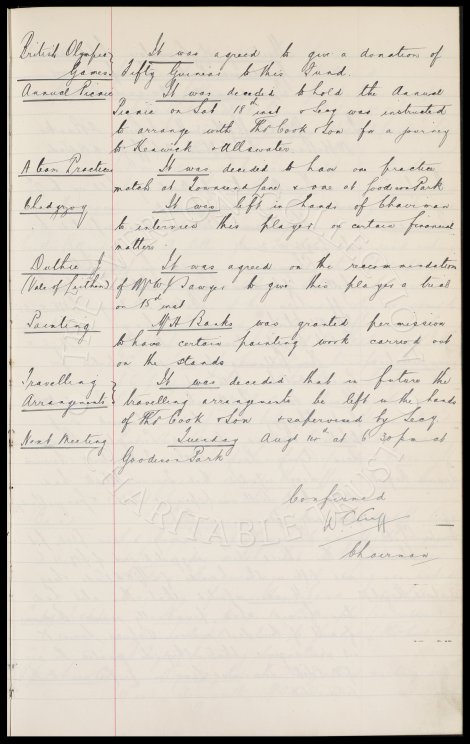 British Olympic } It was agreed to give a donation of
Games } Fifty Guineas to this Fund.
Annual Picnic It was decided to hold the Annual
Picnic on Sat 18th inst & Secy was instructed
to arrange with Thos Cook & Son for a journey
to Keswick & Ullswater
A team Practices It was decided to have one practice
match at Townsend Lane & one at Goodison Park
Chedgzoy It was left in hands of Chairman
to interview this player on certain financial
matters
Duthie J It was agreed on the recommendation
(Vale of Leithen) of Mr W Sawyer to give this player a trial
on 15th inst
Painting Mr A Banks was granted permission
to have certain painting work carried out
on the stands
Travelling } It was decided that in future the
Arrangements } travelling arrangements be left in the hands
of Thos Cook & Son & supervised by Secy
Next Meeting Tuesday Augt 14th at 6 30pm at
Goodison Park
Confirmed
W C Cuff
Chairman
CHARITABLE TRUST